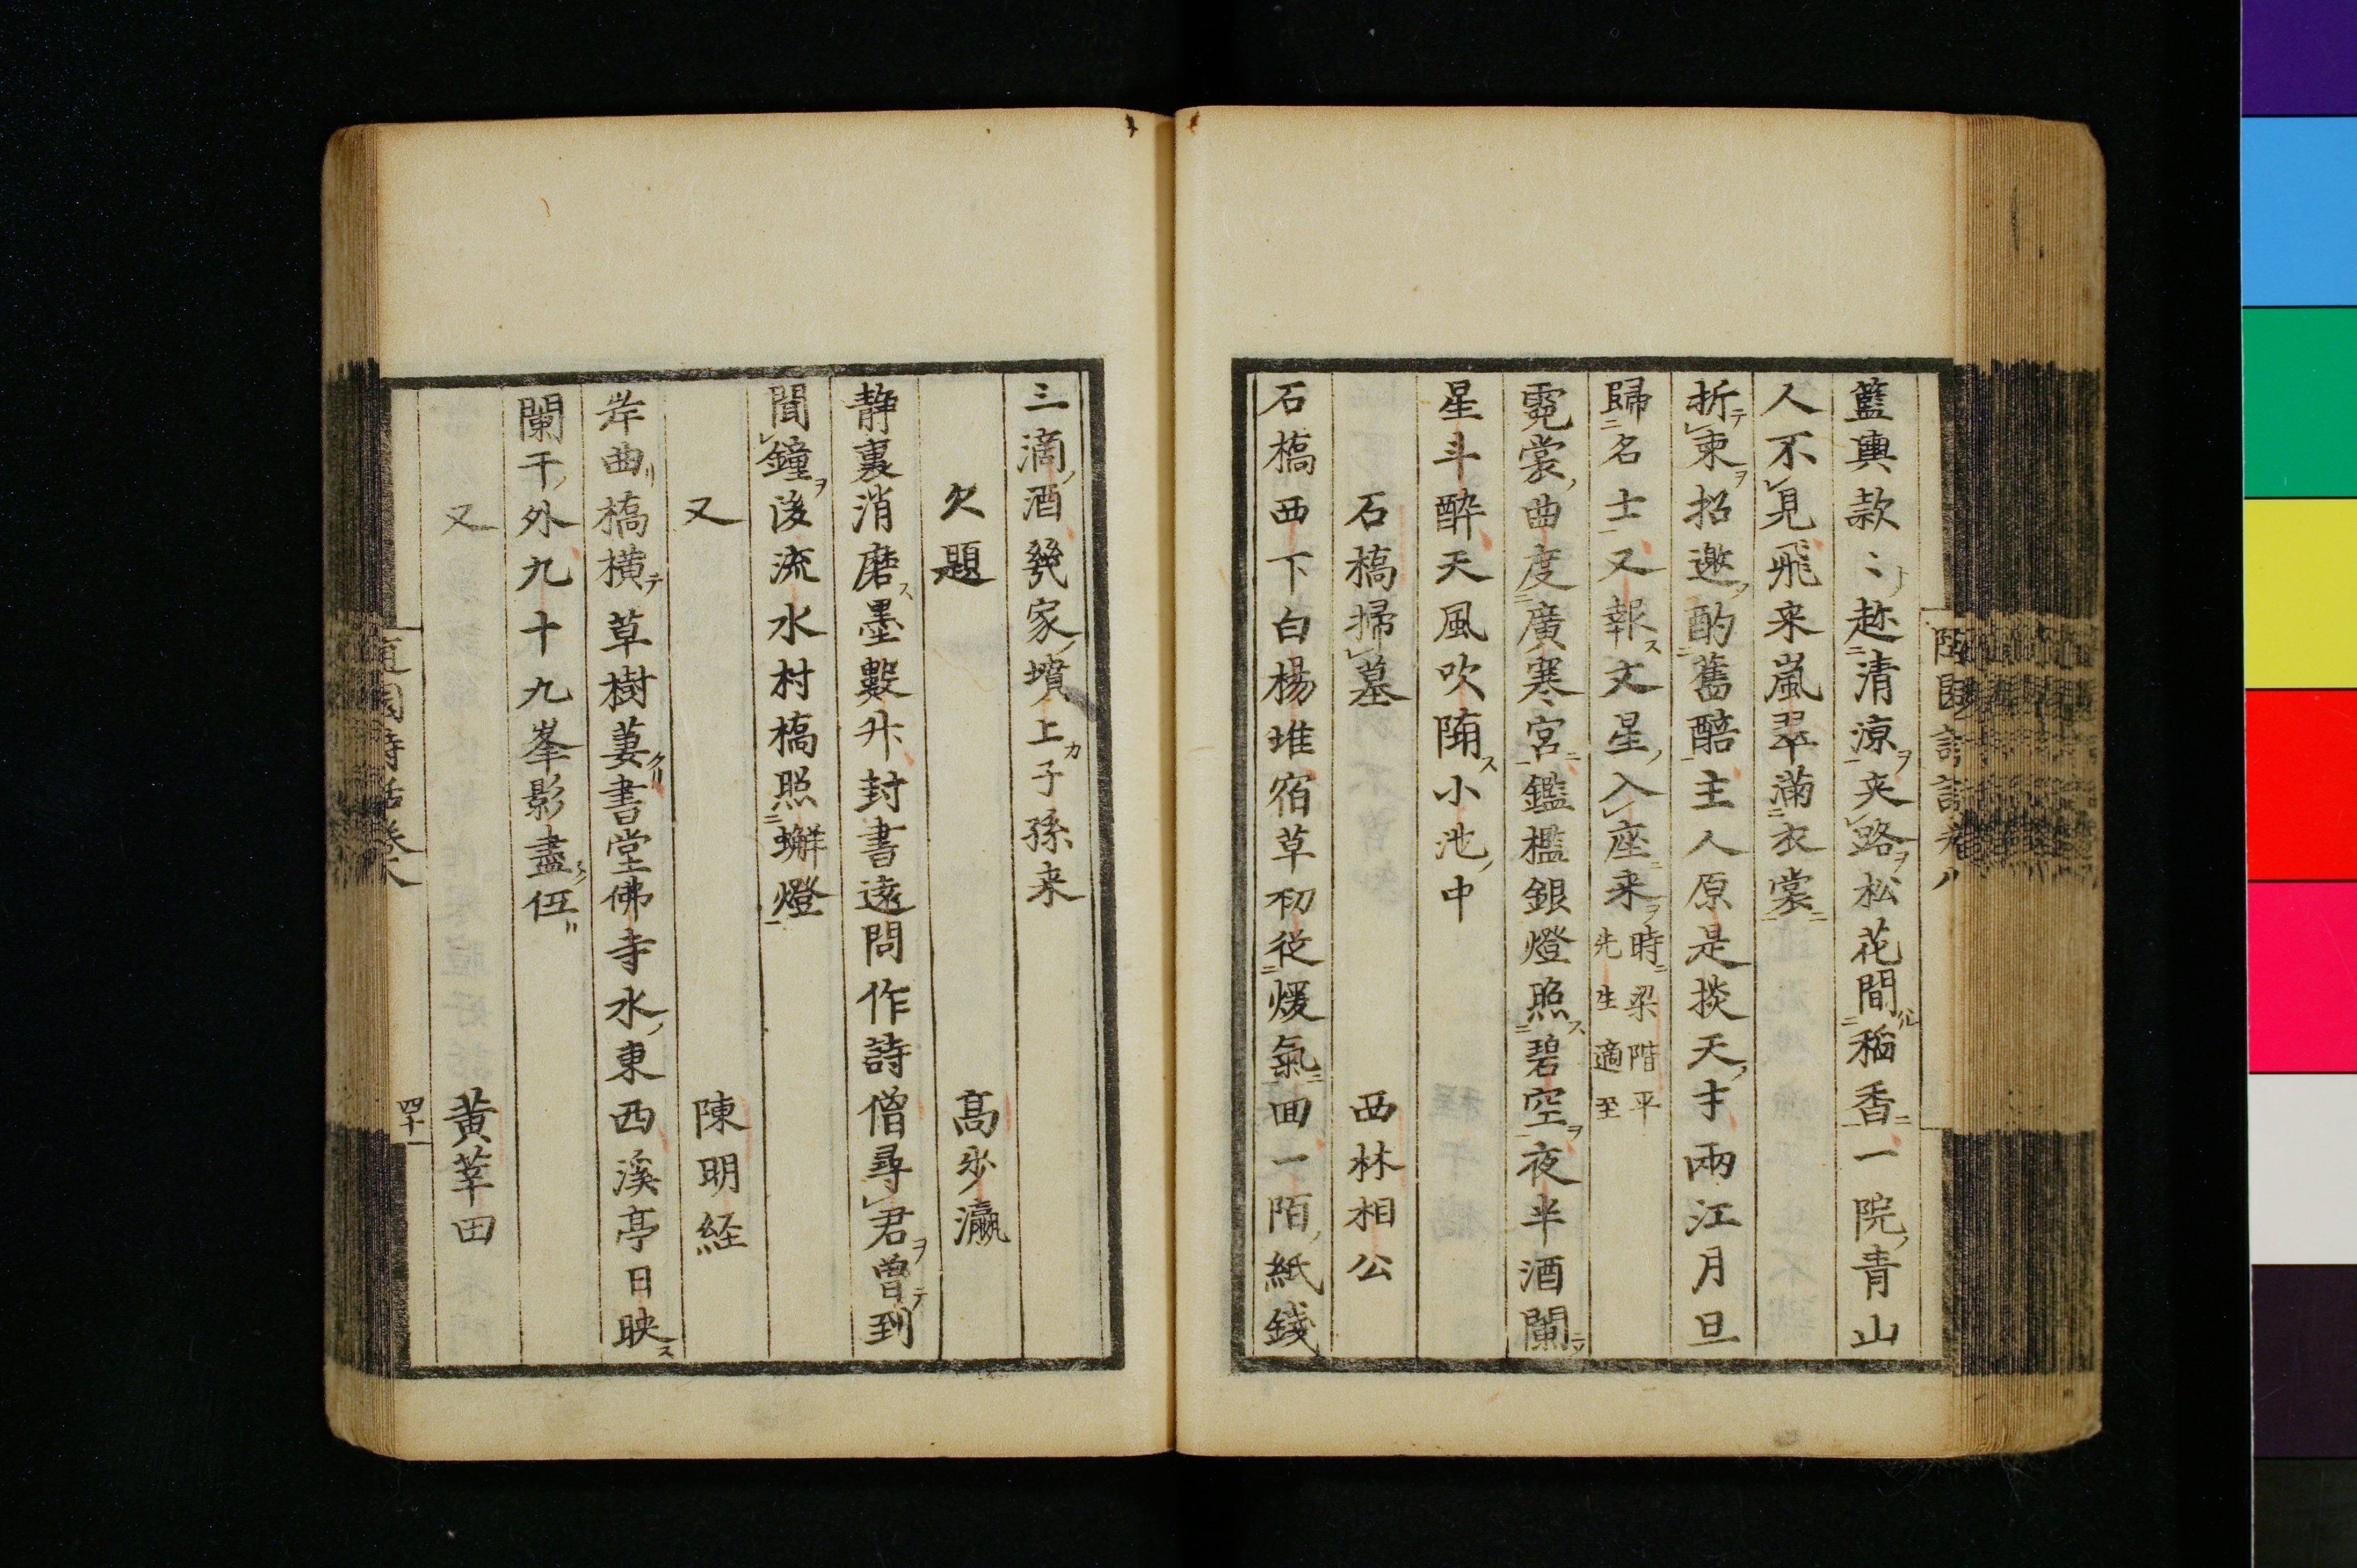 籃輿款〻赴清涼夾路松花間稲香一院青山
人不見飛来嵐翠滿衣裳
折束招邀酌舊醅主人原是掞天才兩江月旦
歸名士又報文星入座来時梁階平先生適至
霓裳曲度廣寒宮鑑檻銀燈照碧空夜半酒闌
星斗醉天風吹隋小池中
石橋掃墓　西林相公
石橋西下白楊堆宿草初従煖氣回一陌紙錢
三滴酒幾家墳上子孫来
欠題　高步瀛
静裏消磨墨數升封書遠問作詩僧尋君曾到
聞鐘後流水村橋照蠏燈
又　陳明経
岸曲橋横草樹荽書堂佛寺水東西溪亭日映
闌干外九十九峯影盡伍
又　黄莘田
随園詩話巻八
四十一